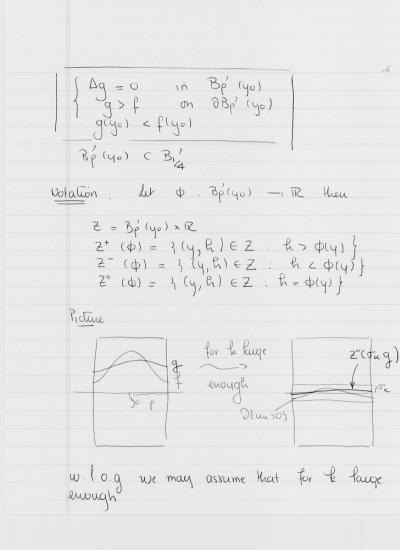 Δg = 0 in B'ρ (y₀)
g > f on ∂B'ρ (y₀)
g(y₀) < f(y₀)
B'ρ (y₀) ⊂ B'1/4
Notation. Let Φ : B'ρ(y₀) → ℝ then
Z = B'ρ(y₀) × ℝ
Z⁺ (Φ) = { (y, h) ∈ Z : h > Φ(y) }
Z⁻ (Φ) = { (y, h) ∈ Z : h < Φ(y) }
Z⁰ (Φ) = { (y, h) ∈ Z : h = Φ(y) }
Picture
for k large
enough
g
f
y₀ ρ
Z⁰(σₖ g)
σₖ
w.l.o.g we may assume that for k large
enough